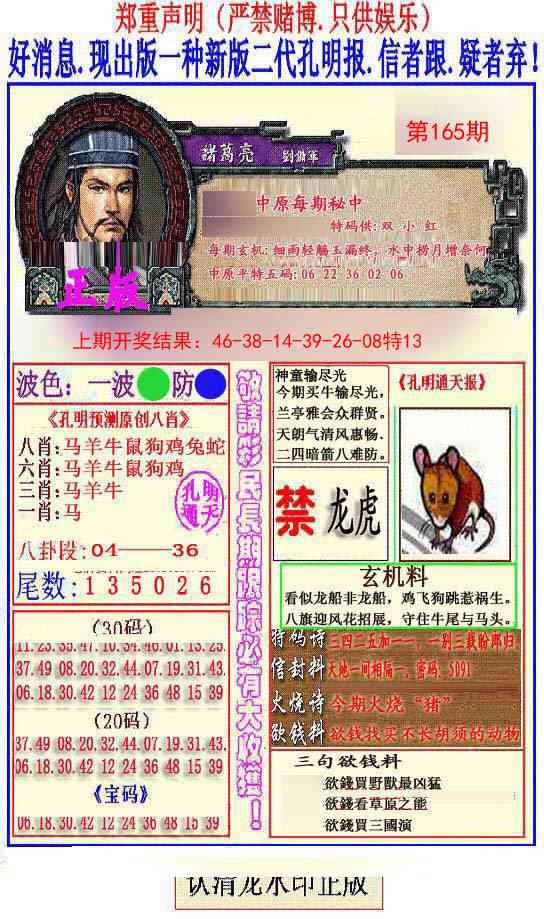 郑重声明（严禁赌博.只供娱乐）
好消息.现出版一种新版二代孔明报.信者跟.疑者弃！
第165期
諸葛亮
劉備軍
中原每期秘中
特码供:双 小 红
每期玄机:细雨轻觞玉漏终，水中捞月增奈何
中原平特五码:06 22 36 02 06
正版
上期开奖结果：46-38-14-39-26-08特13
波色：一波 防
《孔明预测原创八肖》
八肖:马羊牛鼠狗鸡兔蛇
六肖:马羊牛鼠狗鸡
三肖:马羊牛
一肖:马
孔明
通天
八卦段:04——36
尾数:135026
(30码)
11.23.35.47.10.34.46.01.13.25.
37.49 08.20.32.44.07.19.31.43.
06.18.30.42 12 24 36 48 15 39
(20码)
37.49 08.20.32.44.07.19.31.43.
06.18.30.42 12 24 36 48 15 39
《宝码》
06.18.30.42 12 24 36 48 15 39
敬請彩民長期跟踪必有大收獲！
神童输尽光
今期买牛输尽光，
兰亭雅会众群贤。
天朗气清风惠畅．
二四暗箭八难防。
《孔明通天报》
禁 龙虎
玄机料
看似龙船非龙船，鸡飞狗跳惹祸生。
八旗迎风花招展，守住牛尾与马头。
特码诗 三四二五加一一，一别三载盼郎归
信封料 天地一间相隔一．密码．5091
火烧诗 今期火烧“猪”
欲钱料 欲钱我买不长胡须的动物
三句欲钱料
欲錢買野獸最凶猛
欲錢看草原之能
欲錢買三國演
认清龙水印正版